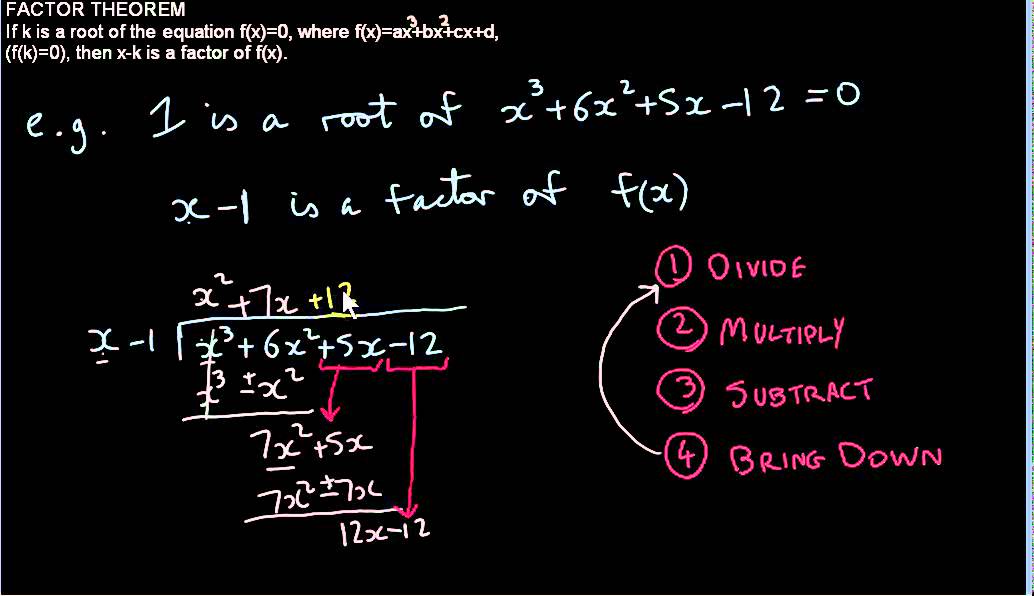 FACTOR THEOREM
If k is a root of the equation f(x)=0, where f(x)=ax³+bx²+cx+d,
(f(k)=0), then x-k is a factor of f(x).
e.g. 1 is a root of x³+6x²+5x-12=0
x-1 is a factor of f(x)
x²+7x+12
x-1 x³+6x²+5x-12
x³±x²
7x²+5x
7x²±7x
12x-12
1 DIVIDE
2 MULTIPLY
3 SUBTRACT
4 BRING DOWN